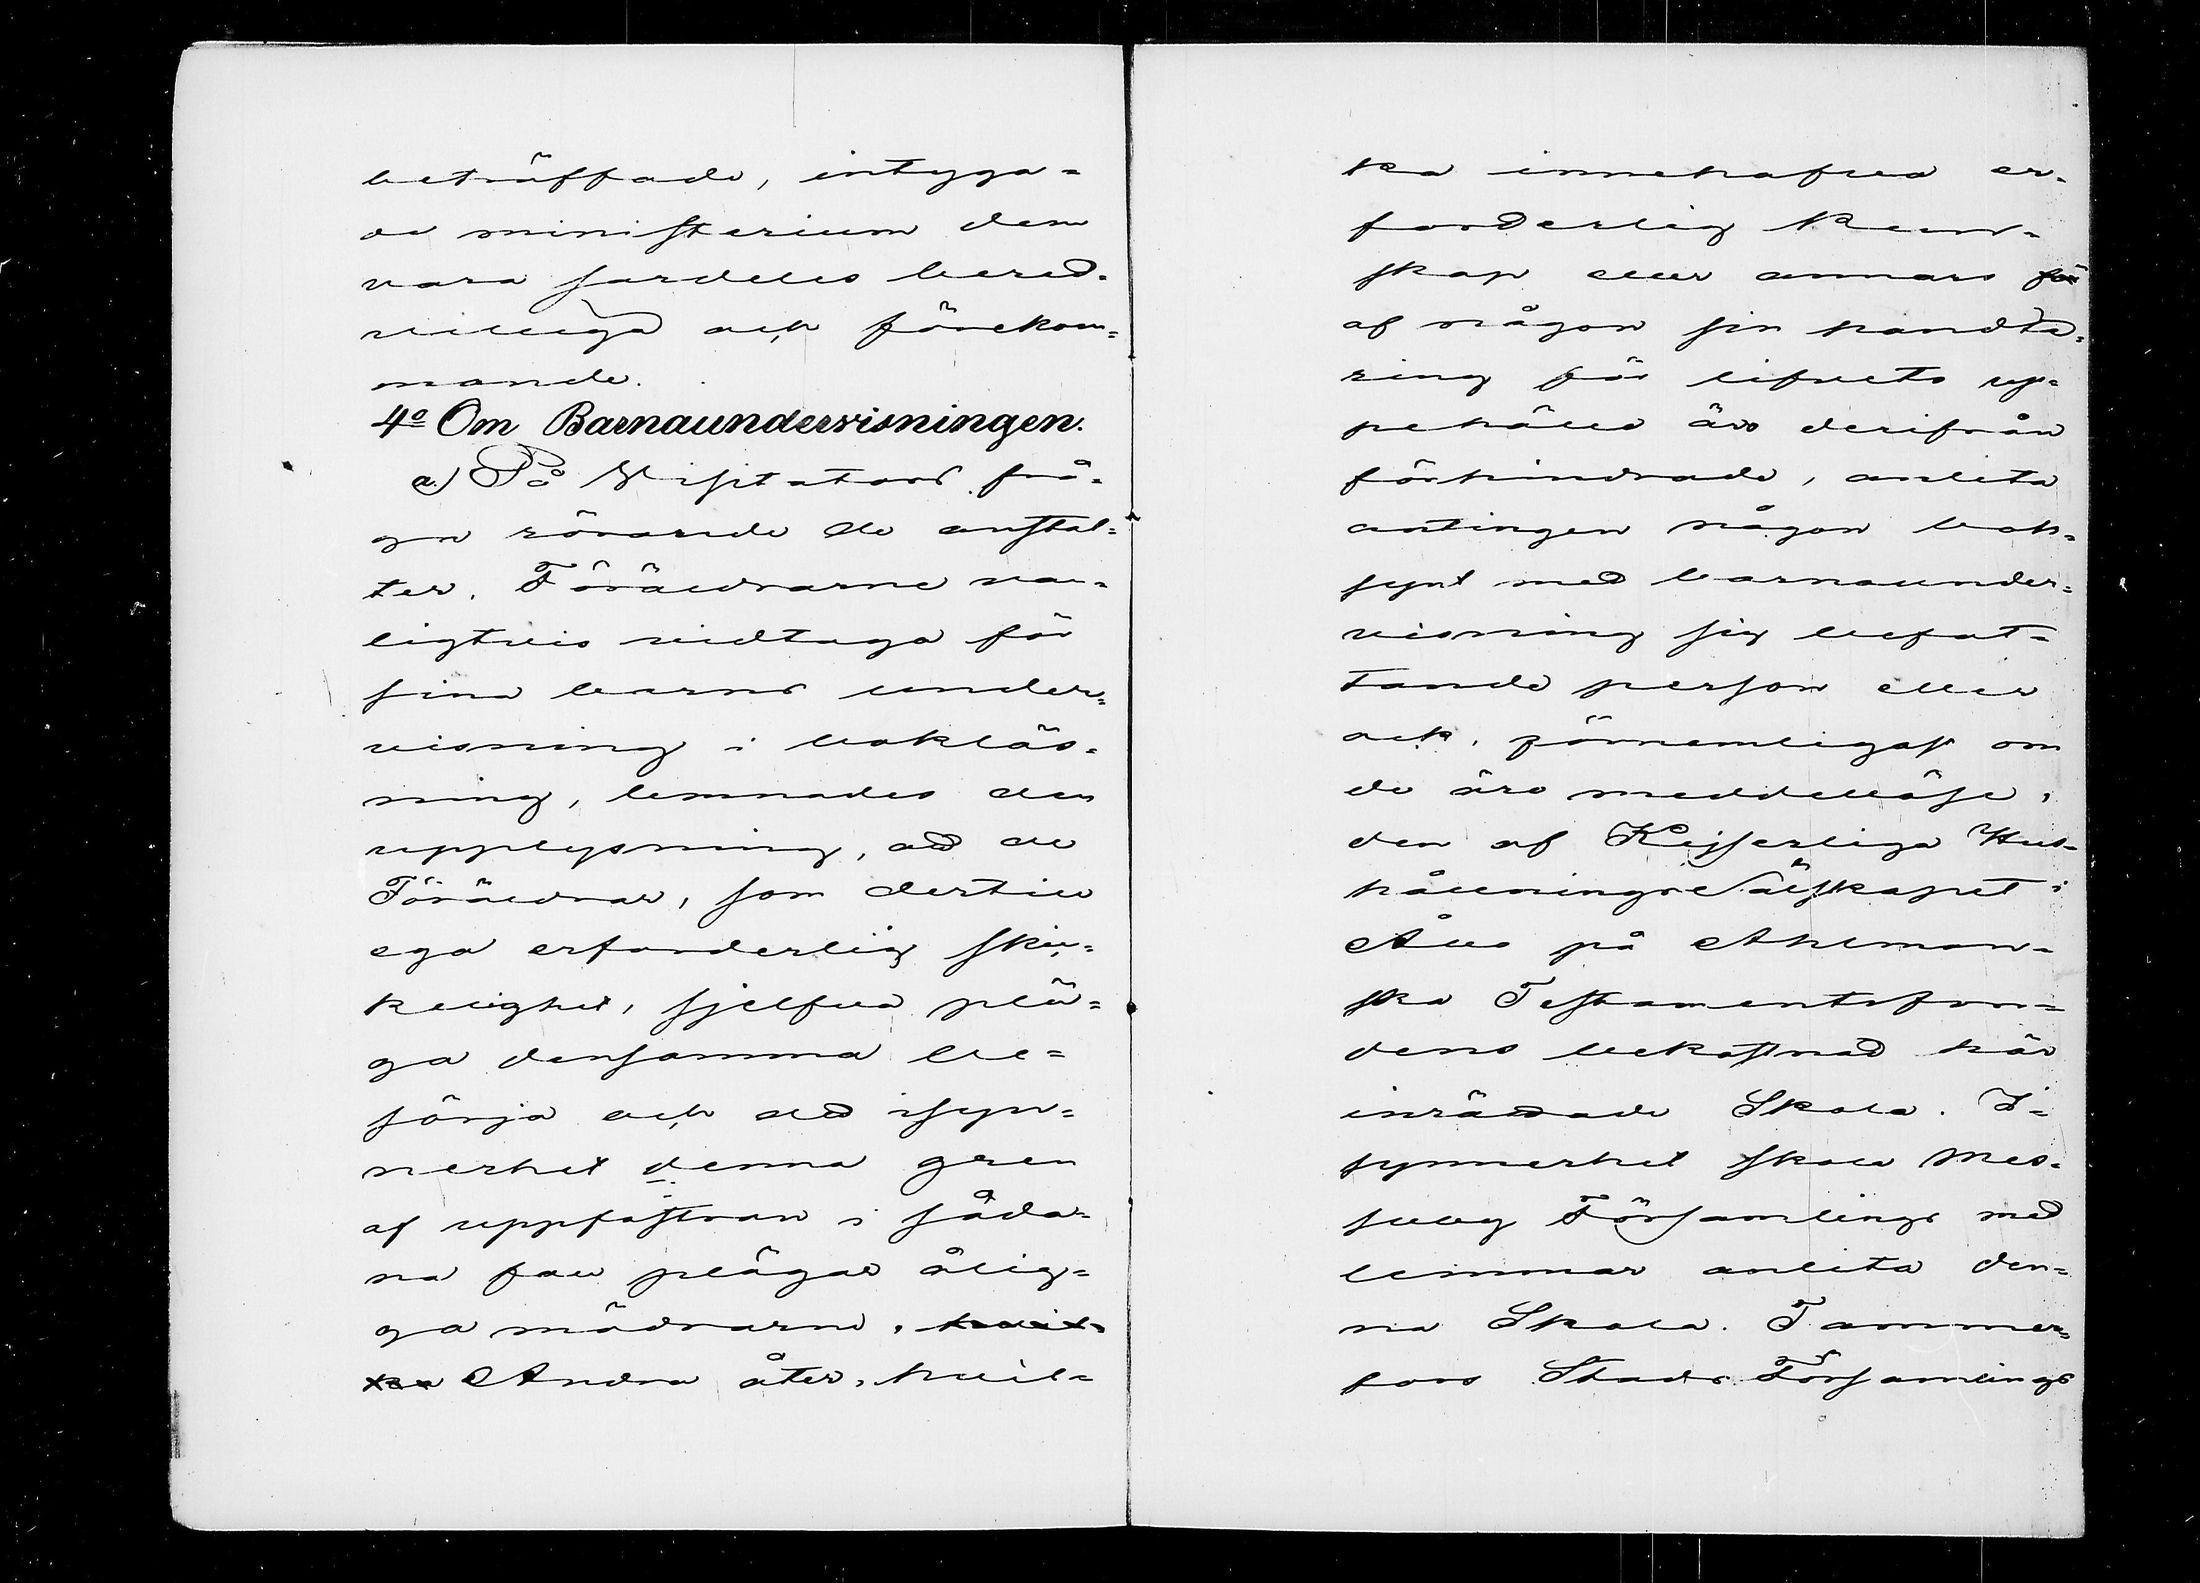 beträffade, intyga-
de ministerium dem
vara särdeles bered-
villiga och förekom-
mande.
4º Om Barnaundervisningen.
a) På Visitators frå-
gn rörande de anstal-
ter, Föräldrarne van-
ligtvis vidtaga för
sina barns under-
visning i bokläs-
ning, lemnades den
upplysning, att de
Föräldrar, som dertill
ega erforderlig skic-
kelighet, sjelfva plä-
ga densamma be-
sörja och att isyn-
nerhet denna gren
af uppfostran i såda-
na fall plägar ålig-
ga mödrarne. hvil-
ka Andra åter, hvil-
ka innehafva er-
forderlig kun-
skap eller annars för
af någon sin handte-
ring för lifvets up-
pehälle äro derifrån
förhindrade, anlita
antingen någon bok-
synt med barnaunder-
visning sig befat-
tande person eller
ock, förnemligast om
de äro medellöse,
den af Kejserliga Hus-
hållningssälskapet i
Åbo på Ahlman-
ska Testamentsfon-
dens bekostnad här
inrättade Skola. I-
synnerhet skola Mes-
suby Församlings med
lemmar anlita den-
na Skola. Tammer-
fors Stads Församlings